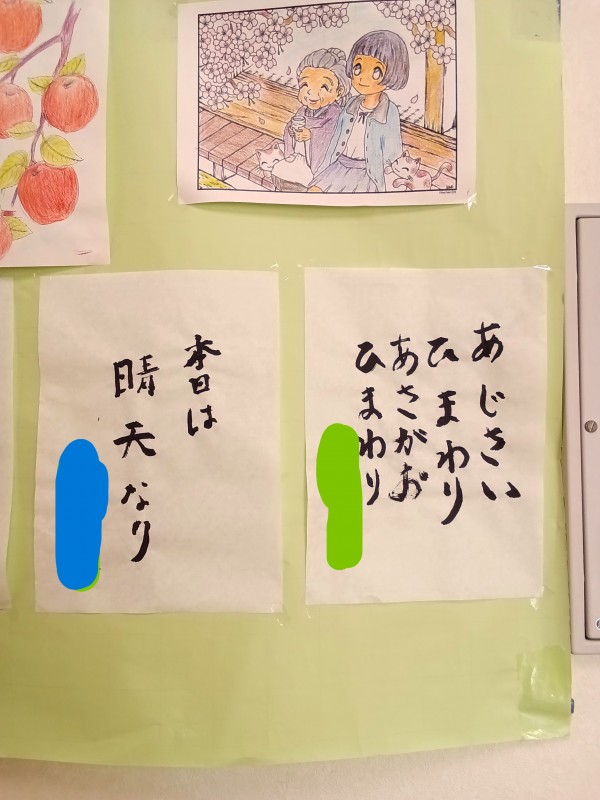 あじさい
ひまわり
あさがお
ひまわり
本日は
晴天なり